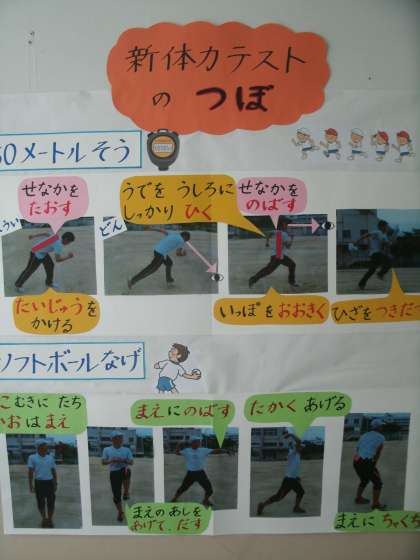 新体力テスト
の つぼ
50メートルそう
せなかを
たおす
うでを うしろに
しっかり ひく
せなかを
のばす
どん
たいじゅうを
かける
いっぽを おおきく
ひざを つきだ
ソフトボールなげ
こむきに たち
おは まえ
まえに のばす
たかく あげる
まえの あしを
あげて、だす
まえに ちゃくち